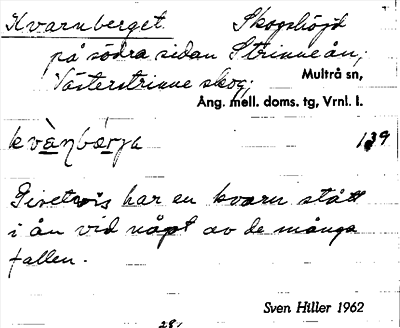 Kvarnberget. Skogshöjd
på södra sidan Strinneån,
Västerstrinne skog; Multrå sn,
Ång. mell. doms. tg, Vrnl. l.
kvànbárja 139
Givetvis har en kvarn stått
i ån vid något av de många
fallen.
Sven Hiller 1962